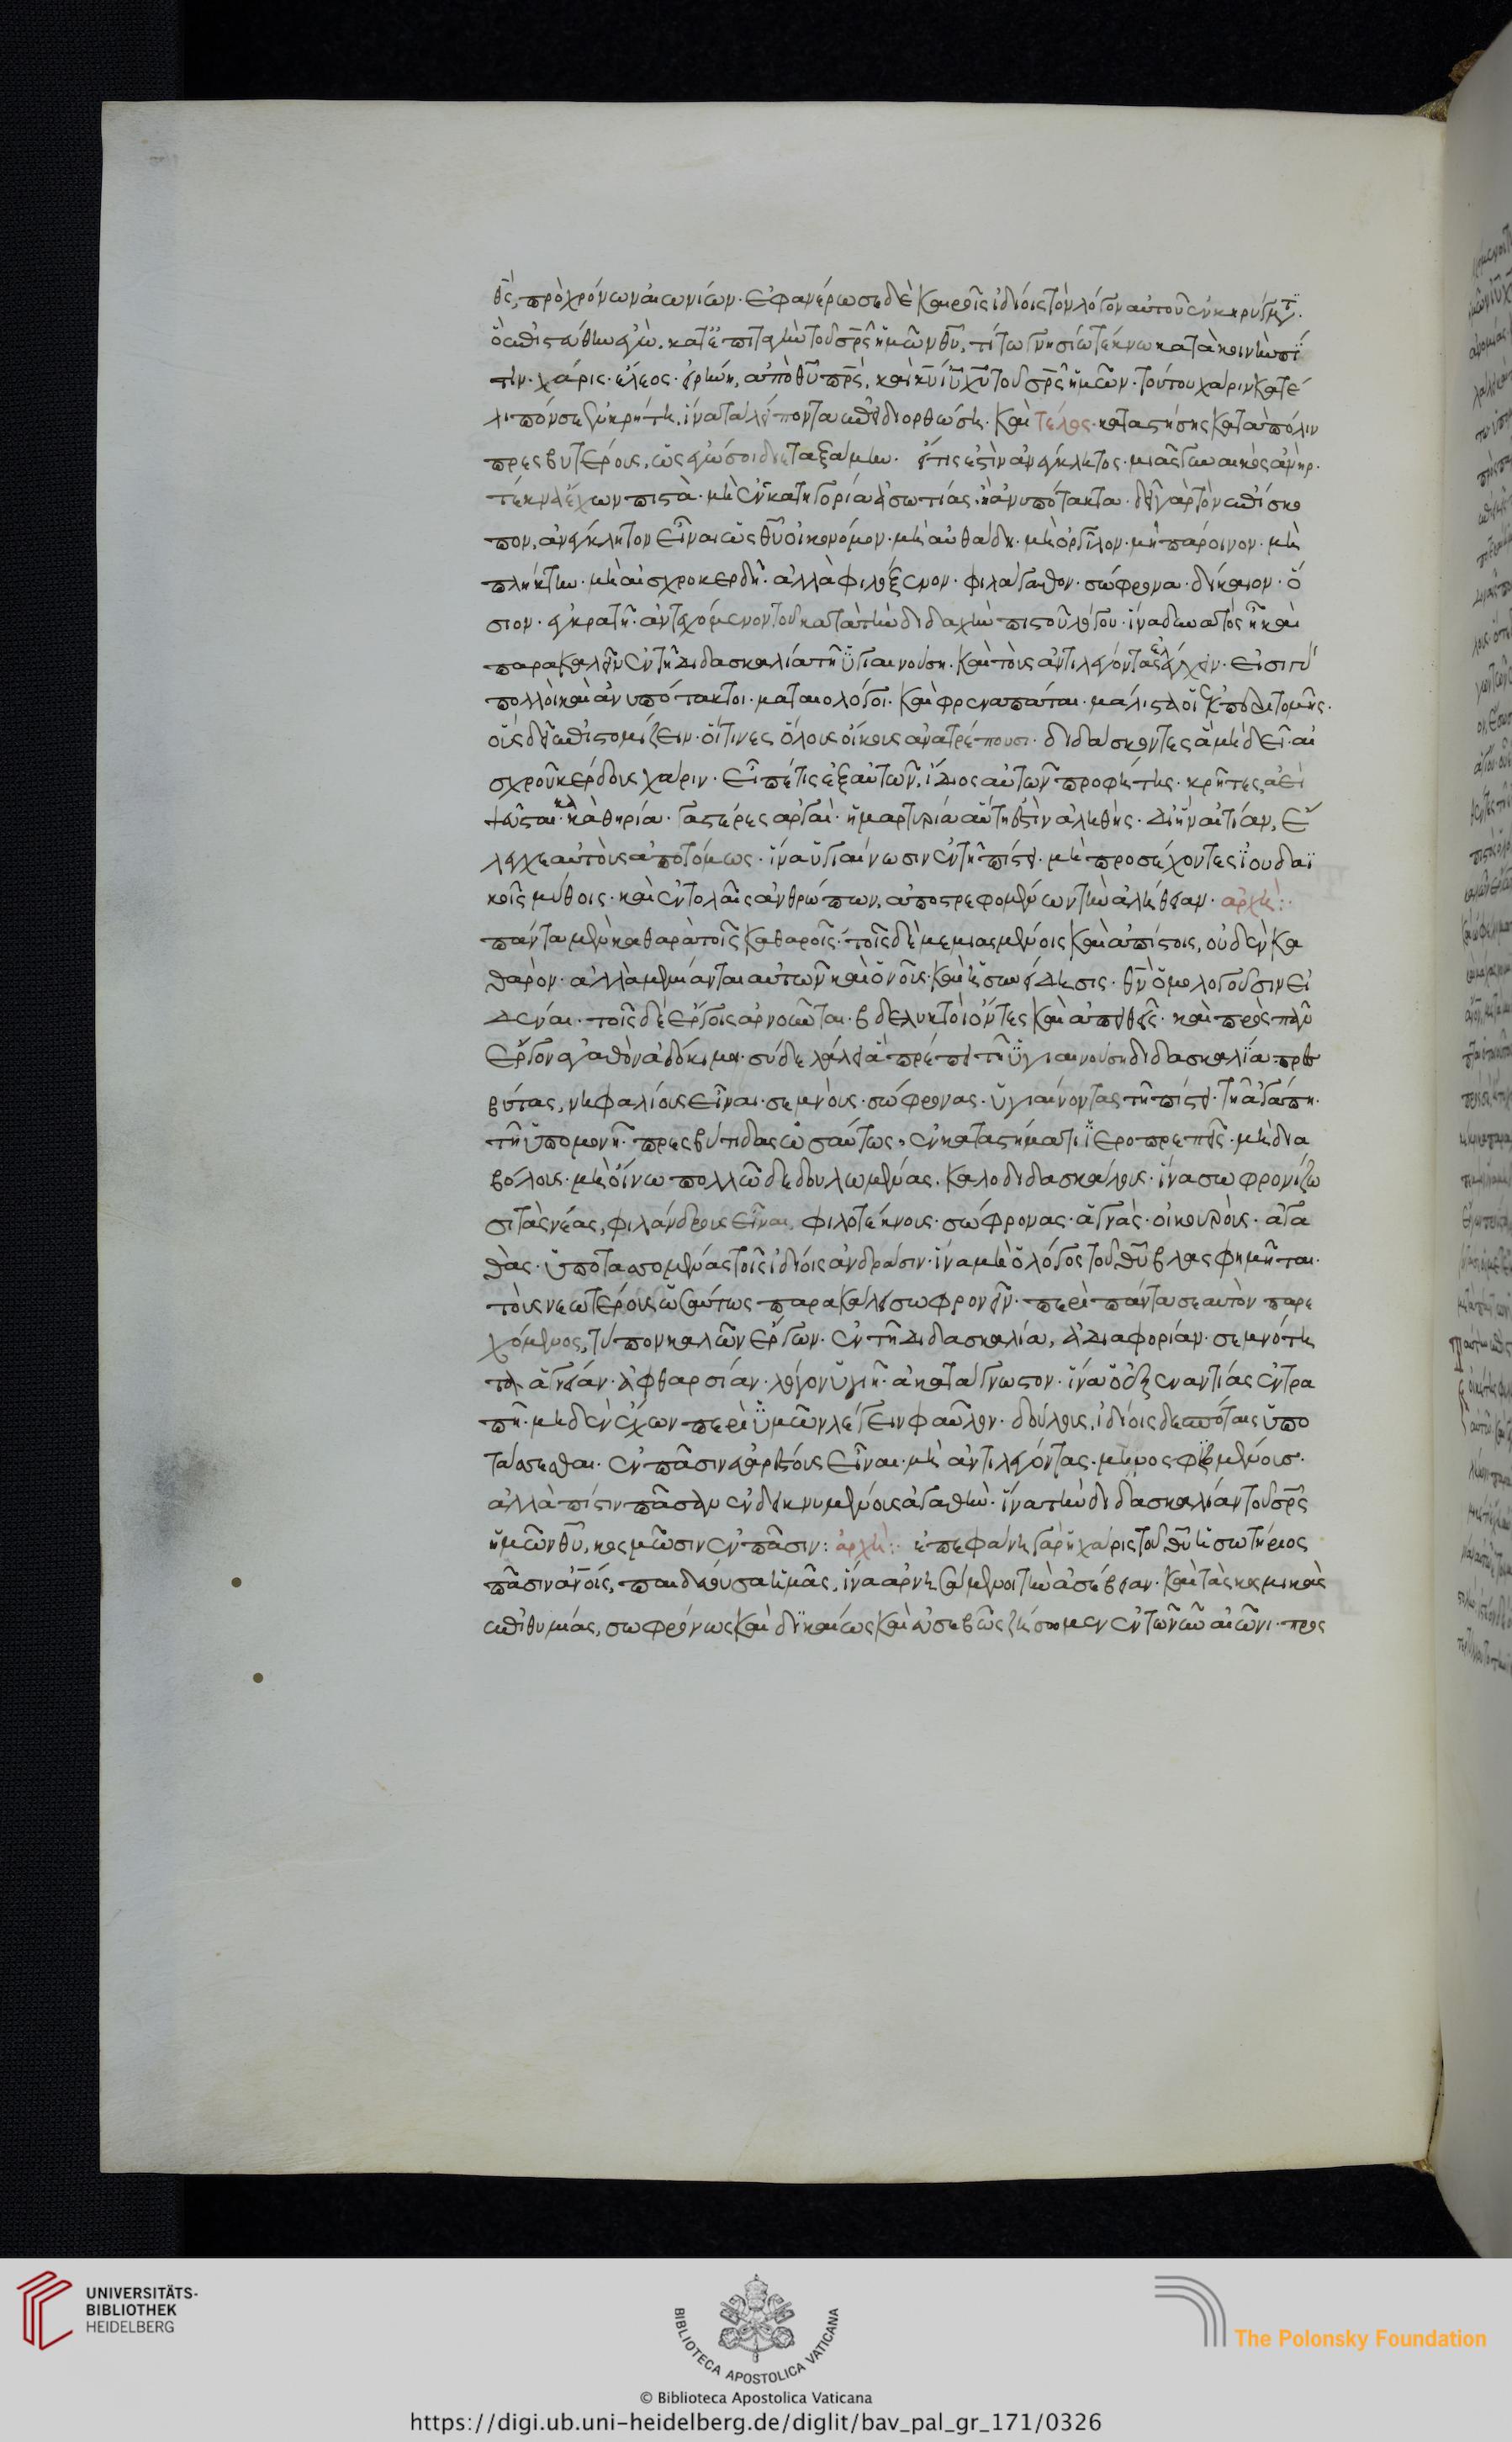 θς, πρὸ χρόνων αἰωνίων· ἐφανέρωσε δὲ καιροῖς ἰδίοις τὸν λόγον αὐτοῦ ἐν κηρύγματι·
ὃ ἐπιστεύθην ἐγὼ, κατ' ἐπιταγὴν τοῦ σρς ἡμῶν θυ, τίτω γνησίω τέκνω κατὰ κοινὴν πί
στιν· χάρις· ἔλεος· εἰρήνη, ἀπὸ θυ πρς, καὶ κυ ιυ χυ τοῦ σρς ἡμῶν· τούτου χάριν κατέ
λιπόν σε ἐν κρήτη, ἵνα τὰ λείποντα ἐπιδιορθώση· καὶ τέλος· καταστήσης κατὰ πόλιν
πρεσβυτέρους, ὡς ἐγώ σοι διεταξάμην· εἴ τις ἐστὶν ἀνέγκλητος· μιᾶς γυναικὸς ἀνὴρ·
τέκνα ἔχων πιστὰ· μὴ ἐν κατηγορία ἀσωτίας, ἢ ἀνυπότακτα· δεῖ γὰρ τὸν ἐπίσκο
πον, ἀνέγκλητον εἶναι ὡς θυ οἰκονόμον· μὴ αὐθάδη· μὴ ὀργίλον· μὴ πάροινον· μὴ
πλήκτην· μὴ αἰσχροκερδῆ· ἀλλὰ φιλόξενον· φιλάγαθον· σώφρονα· δίκαιον· ὅ
σιον· ἐγκρατῆ· ἀντεχόμενον τοῦ κατὰ τὴν διδαχὴν πιστοῦ λόγου· ἵνα δυνατός ἦ καὶ
παρακαλεῖν ἐν τῆ διδασκαλία τῆ ὑγιαινούση· καὶ τοὺς ἀντιλέγοντας ἐλέγχειν· εἰσὶ γὰρ
πολλοὶ καὶ ἀνυπότακτοι· ματαιολόγοι· καὶ φρεναπάται· μάλιστα οἱ ἐκ περιτομῆς·
οὓς δεῖ ἐπιστομίζειν· οἵτινες ὅλους οἴκους ἀνατρέπουσι· διδάσκοντες ἃ μὴ δεῖ· αἰ
σχροῦ κέρδους χάριν· εἶπέ τις ἐξ αὐτῶν, ἴδιος αὐτῶν προφήτης· κρῆτες ἀεὶ
ψεῦσται· κακὰ θηρία· γαστέρες ἀργαὶ· ἡ μαρτυρία αὕτη ἐστὶν ἀληθής· δι' ἣν αἰτίαν, ἔ
λεγχε αὐτοὺς ἀποτόμως· ἵνα ὑγιαίνωσιν ἐν τῆ πίστει· μὴ προσέχοντες ἰουδαϊ
κοῖς μύθοις· καὶ ἐντολαῖς ἀνθρώπων, ἀποστρεφομένων τὴν ἀλήθειαν· ἀρχὴ:·
πάντα μὲν καθαρὰ τοῖς καθαροῖς· τοῖς δὲ μεμιασμένοις καὶ ἀπίστοις, οὐδὲν κα
θαρὸν· ἀλλὰ μεμίανται αὐτῶν καὶ ὁ νοῦς καὶ ἡ συνείδησις· θν ὁμολογοῦσιν εἰ
δέναι· τοῖς δὲ ἔργοις ἀρνοῦνται· βδελυκτοὶ ὄντες καὶ ἀπειθεῖς· καὶ πρὸς πᾶν
ἔργον ἀγαθὸν ἀδόκιμοι· σὺ δὲ λάλει ἃ πρέπει τῆ ὑγιαινούση διδασκαλία· πρεσ
βύτας, νηφαλίους εἶναι· σεμνοὺς· σώφρονας· ὑγιαίνοντας τῆ πίστει· τῆ ἀγάπη·
τῆ ὑπομονῆ· πρεσβύτιδας ὡσαύτως, ἐν καταστήματι ἱεροπρεπεῖς· μὴ δια
βόλους· μὴ οἴνω πολλῶ δεδουλωμένας, καλοδιδασκάλους· ἵνα σωφρονίζω
σι τὰς νέας, φιλάνδρους εἶναι, φιλοτέκνους· σώφρονας· ἁγνὰς· οἰκουροὺς· ἀγα
θὰς· ὑποτασσομένας τοῖς ἰδίοις ἀνδράσιν· ἵνα μὴ ὁ λόγος τοῦ θυ βλασφημῆται·
τοὺς νεωτέρους ὡσαύτως παρακάλει σωφρονεῖν· περὶ πάντα σεαυτὸν παρε
χόμενος, τύπον καλῶν ἔργων· ἐν τῆ διδασκαλία, ἀδιαφορίαν· σεμνότη
τα ἁγνείαν· ἀφθαρσίαν· λόγον ὑγιῆ· ἀκατάγνωστον· ἵνα ὁ ἐξ ἐναντίας ἐντρα
πῆ· μηδὲν ἔχων περὶ ὑμῶν λέγειν φαῦλον· δούλους, ἰδίοις δεσπόταις ὑπο
τάσσεσθαι· ἐν πᾶσιν εὐαρέστους εἶναι· μὴ ἀντιλέγοντας·
ἀλλὰ πίστιν πᾶσαν ἐνδεικνυμένους ἀγαθὴν· ἵνα τὴν διδασκαλίαν τοῦ σρς
ἡμῶν θυ, κοσμῶσιν ἐν πᾶσιν: ἀρχὴ:· ἐπεφάνη γὰρ ἡ χάρις τοῦ θυ ἡ σωτήριος
πᾶσιν ανοις, παιδεύουσα ἡμᾶς, ἵνα ἀρνησάμενοι τὴν ἀσέβειαν· καὶ τὰς κοσμικὰς
ἐπιθυμίας, σωφρόνως καὶ δικαίως καὶ εὐσεβῶς ζήσωμεν ἐν τῶ νῦν αἰῶνι· προς
UNIVERSITÄTS-
BIBLIOTHEK
HEIDELBERG
BIBLIOTECA APOSTOLICA VATICANA
© Biblioteca Apostolica Vaticana
The Polonsky Foundation
https://digi.ub.uni-heidelberg.de/diglit/bav_pal_gr_171/0326